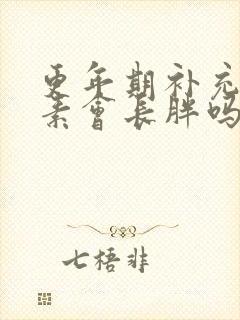 更年期补充
素会长胖吗
七梧非